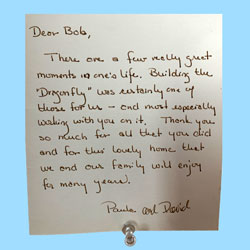 Dear Bob,
There are a few really great
moments in one's life. Building the
"Dragonfly" was certainly one of
those for us – and most especially
working with you on it. Thank you
so much for all that you did
and for this lovely home that
we and our family will enjoy
for many years.
Paula and David